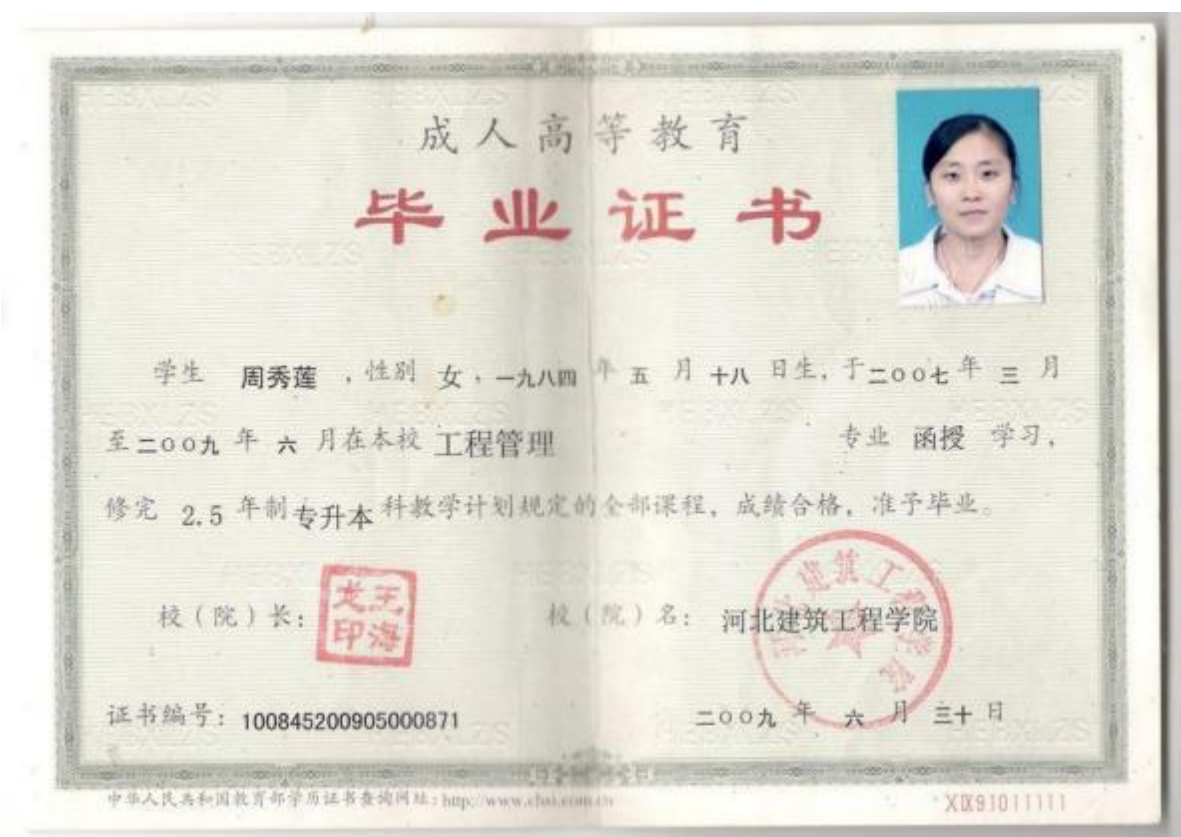 成人高等教育
毕业证书
学生 周秀莲 ，性别 女，一九八四 年 五 月 十八 日生，于二〇〇七年 三 月
至二〇〇九 年 六 月在本校 工程管理 专业 函授 学习，
修完 2.5 年制 专升本 科教学计划规定的全部课程，成绩合格，准予毕业。
校（院）长： 王海龙印
校（院）名： 河北建筑工程学院
河北建筑工程学院
证书编号：100845200905000871
二〇〇九 年 六 月 三十 日
中华人民共和国教育部学历证书查询网址：http://www.chsi.com.cn
XIX91011111
HEBXLZS